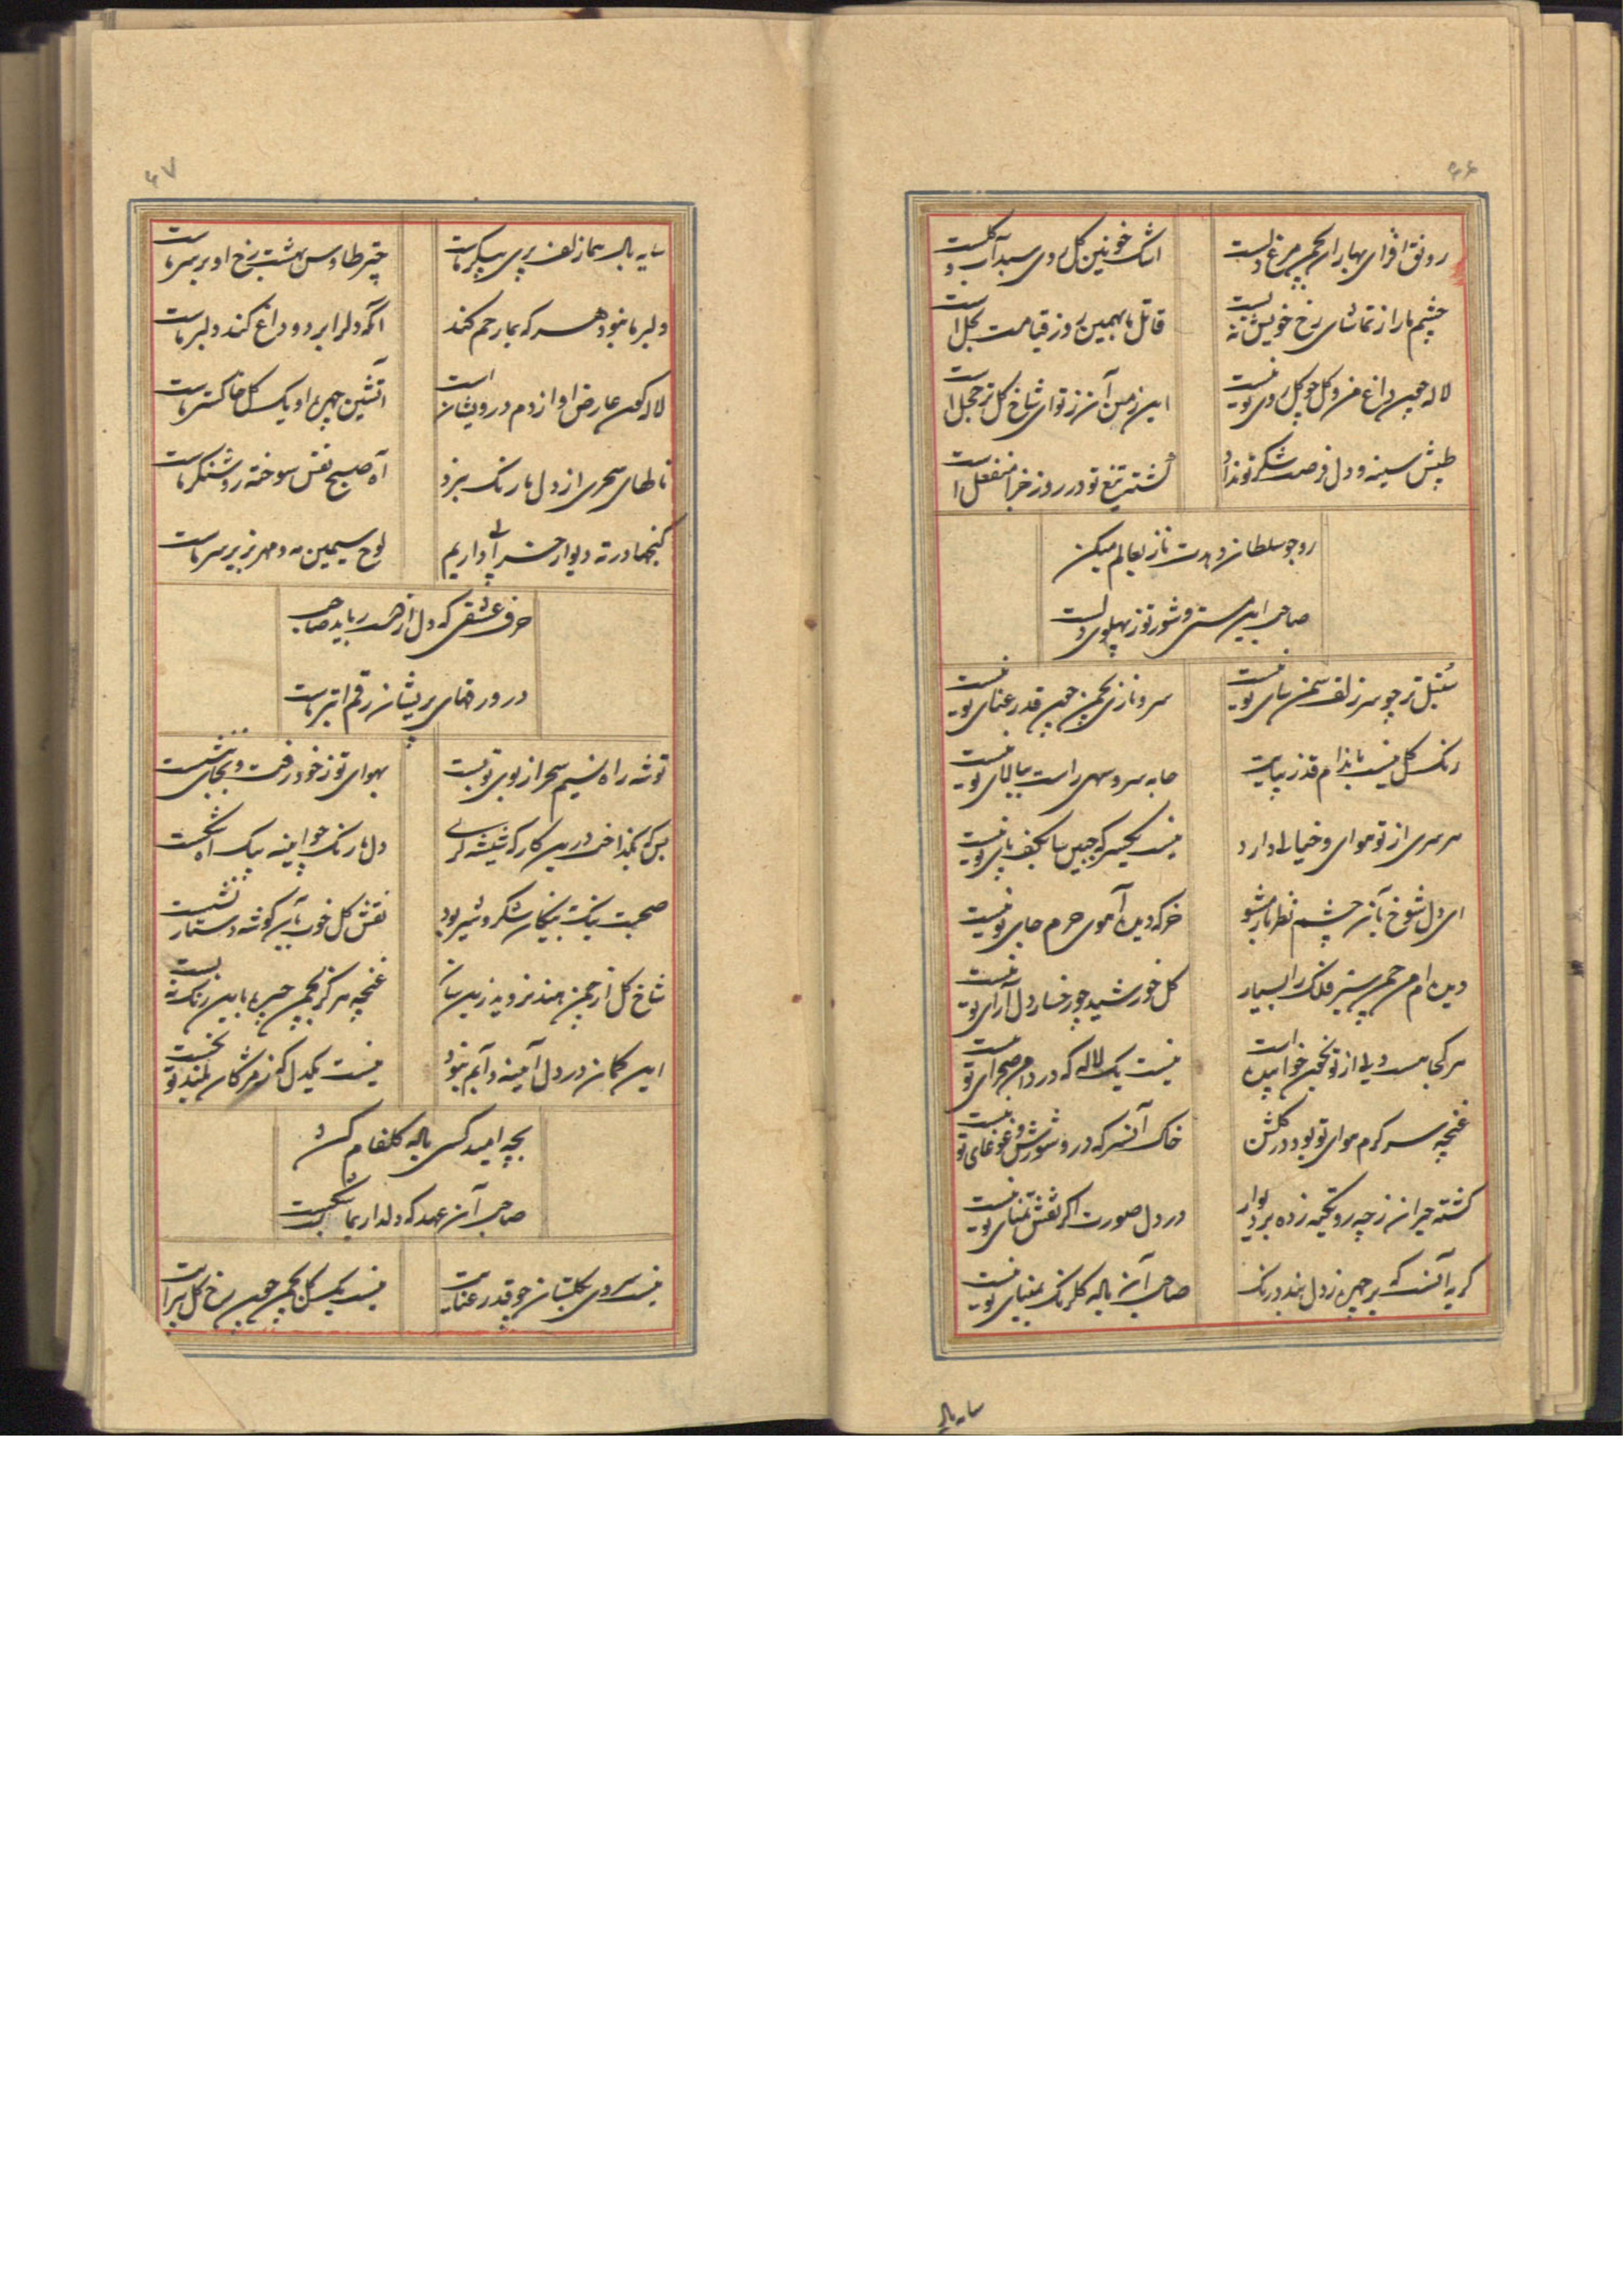 ۴۶
رونق افزای بهار ای چمن مرغ دلست
اشک خونین گل روی سبد آب و گلست
چشم ما را ز تماشای رخ خویش نه بست
قاتل ما بهمین روز قیامت بحل است
لاله چون داغ من و گل چو گل روی تو نیست
این ز من آن ز تو ای شاخ گل تر خجل است
طپش سینه و دل فرصت شکر تو نداد
کشته تیغ تو در روز جزا منفعل است
رو چو سلطان و بدت ناز بعالم میکن
صاحب این مستی و شور تو ز پهلوی دلست
سنبل تر چو سر زلف سمن سای تو نیست
سرو نازی بچمن چون قد رعنای تو نیست
رنگ گل نیست باندام قد زیبایت
جامه سرو سهی راست ببالای تو نیست
هر سری از تو هوای و خیالی دارد
نیست یکسر که جبین سا بکف پای تو نیست
ای دل شوخ بآن چشم نظرباز مشو
خر که دیدن آهوی حرم جای تو نیست
دیده ام من چمن پیر فلک را بسیار
گل خورشید چو رخسار دل آرای تو نیست
هر کجا هست دلی از تو بخون خوابیده است
نیست یک لاله که در دامن صحرای تو نیست
غنچه سر گرم هوای تو بود در گلشن
خاک آنسر که درو شورش و غوغای تو نیست
گشته حیران ز چه رو تکیه زده بر دیوار
در دل صورت اگر نقش تمنای تو نیست
گریه آنست که بر چهره ز دل بندد رنگ
صاحب این باله گلرنگ بمینای تو نیست
سایه بال
۴۷
سایه بال هما زلف پری پیکر ماست
چتر طاوس بهشت رخ او بر سر ماست
دلبر ما نبود هر که بما رحم کند
آنکه دل را برد و داغ کند دلبر ماست
لاله گون عارض او از دم درویشان است
آتشین چهره او یک گل خاکستر ماست
نالهای سحری از دل ما رنگ برد
آه صبح نفس سوخته روشنگر ماست
گنجها در ته دیوار خرابی داریم
لوح سیمین مه و مهر بزیر سر ماست
حرف عشقی که دل از هر رباید صاحب
در ورقهای پریشان رقم ابتر ماست
توشه راه نسیم سحر از بوی تو بست
بهوای تو ز خود رفت و بجای ننشست
بس که بگداخت درین کارگه شیشه گری
دل ما رنگ چو آیینه بیک آه شکست
صحبت نیک به نیکان شکر و شیر بود
نقش گل خوب بآن گوشه دستار نشست
شاخ گل از چمن هند نروید زین سان
غنچه هرگز بچمن چیره باین رنگ نه بست
این گمان در دل آیینه دلم نبود
نیست یکدل که ز مژگان بلند تو نخست
بچه امید کسی باله گلفام کشد
صاحب آن عهد که دلدار بما بست شکست
نیست سروی بگلستان چو قد رعنایت
نیست یک گل بچمن چون رخ گل پیرایت